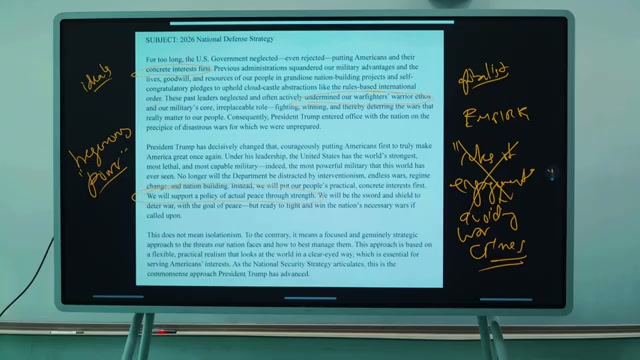 ideals
hegemony
"power"
SUBJECT: 2026 National Defense Strategy
For too long, the U.S. Government neglected—even rejected—putting Americans and their
concrete interests first. Previous administrations squandered our military advantages and the
lives, goodwill, and resources of our people in grandiose nation-building projects and self-
congratulatory pledges to uphold cloud-castle abstractions like the rules-based international
order. These past leaders neglected and often actively undermined our warfighters' warrior ethos
and our military's core, irreplaceable role—fighting, winning, and thereby deterring the wars that
really matter to our people. Consequently, President Trump entered office with the nation on the
precipice of disastrous wars for which we were unprepared.
President Trump has decisively changed that, courageously putting Americans first to truly make
America great once again. Under his leadership, the United States has the world's strongest,
most lethal, and most capable military—indeed, the most powerful military that this world has
ever seen. No longer will the Department be distracted by interventionism, endless wars, regime
change, and nation building. Instead, we will put our people's practical, concrete interests first.
We will support a policy of actual peace through strength. We will be the sword and shield to
deter war, with the goal of peace—but ready to fight and win the nation's necessary wars if
called upon.
This does not mean isolationism. To the contrary, it means a focused and genuinely strategic
approach to the threats our nation faces and how to best manage them. This approach is based on
a flexible, practical realism that looks at the world in a clear-eyed way, which is essential for
serving Americans' interests. As the National Security Strategy articulates, this is the
commonsense approach President Trump has advanced.
globalist
EMPIRE
"rules of
engagement"
avoiding
war
crimes